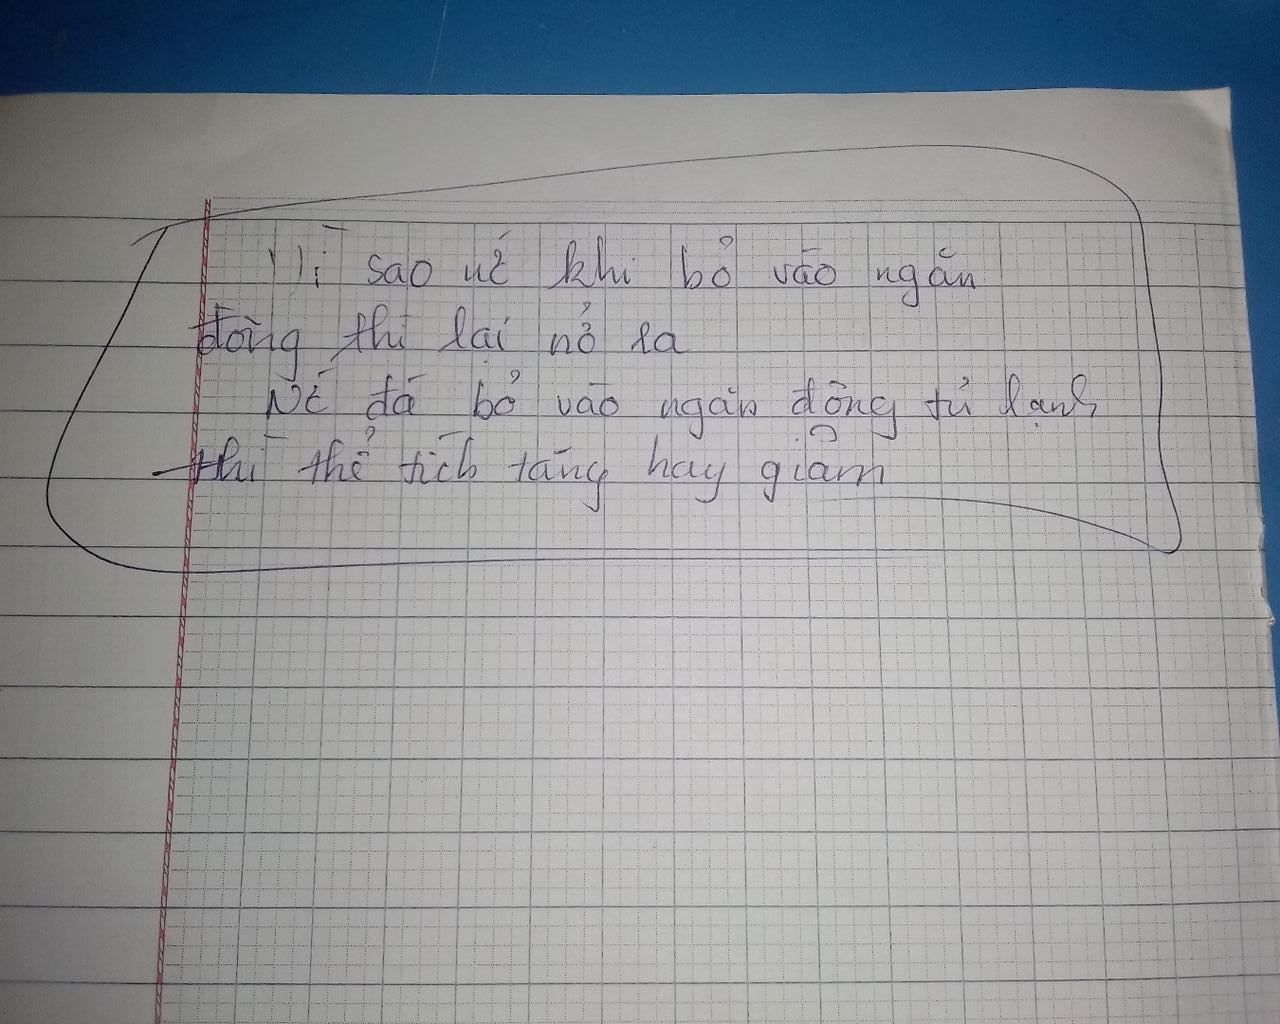 Vì sao nế khi bỏ vào ngăn
đông thì lại nở ra
Nế đá bỏ vào ngăn đông tủ lạnh
thì thể tích tăng hay giảm